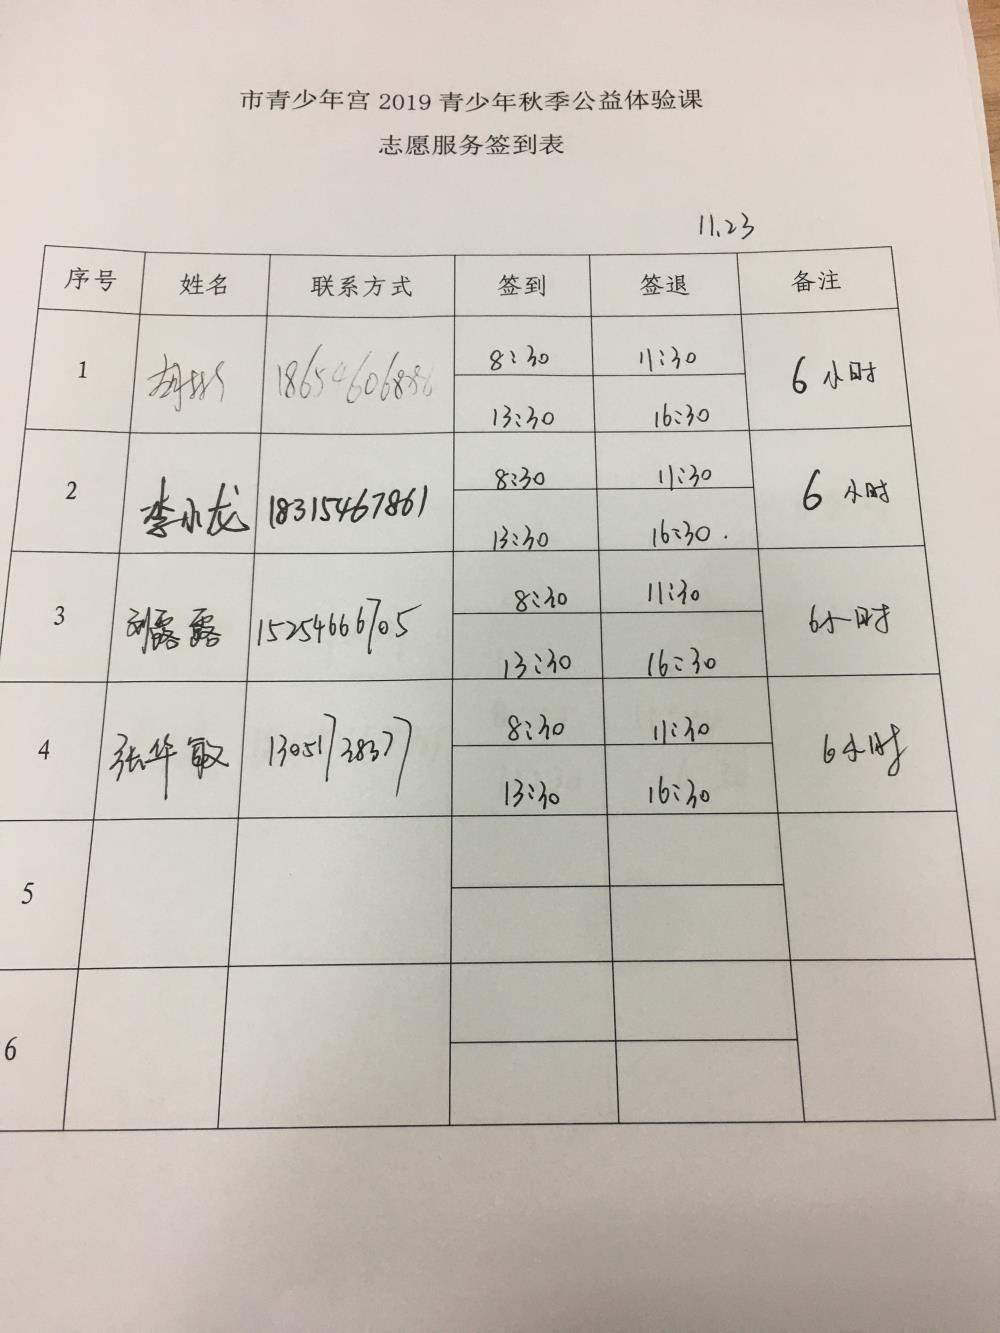 市青少年宫 2019 青少年秋季公益体验课
志愿服务签到表
11.23
序号 姓名 联系方式 签到 签退 备注
1 8:30 11:30 6小时
13:30 16:30
2 李小龙 18315467861 8:30 11:30 6小时
13:30 16:30.
3 刘露露 15254666705 8:30 11:30 6小时
13:30 16:30
4 张华敏 13051728377 8:30 11:30 6小时
13:30 16:30
5
6